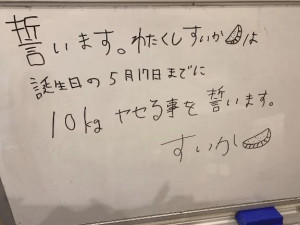 誓います。わたくしすいか🍉は
誕生日の5月17日までに
10kgヤセる事を誓います。
すいか🍉